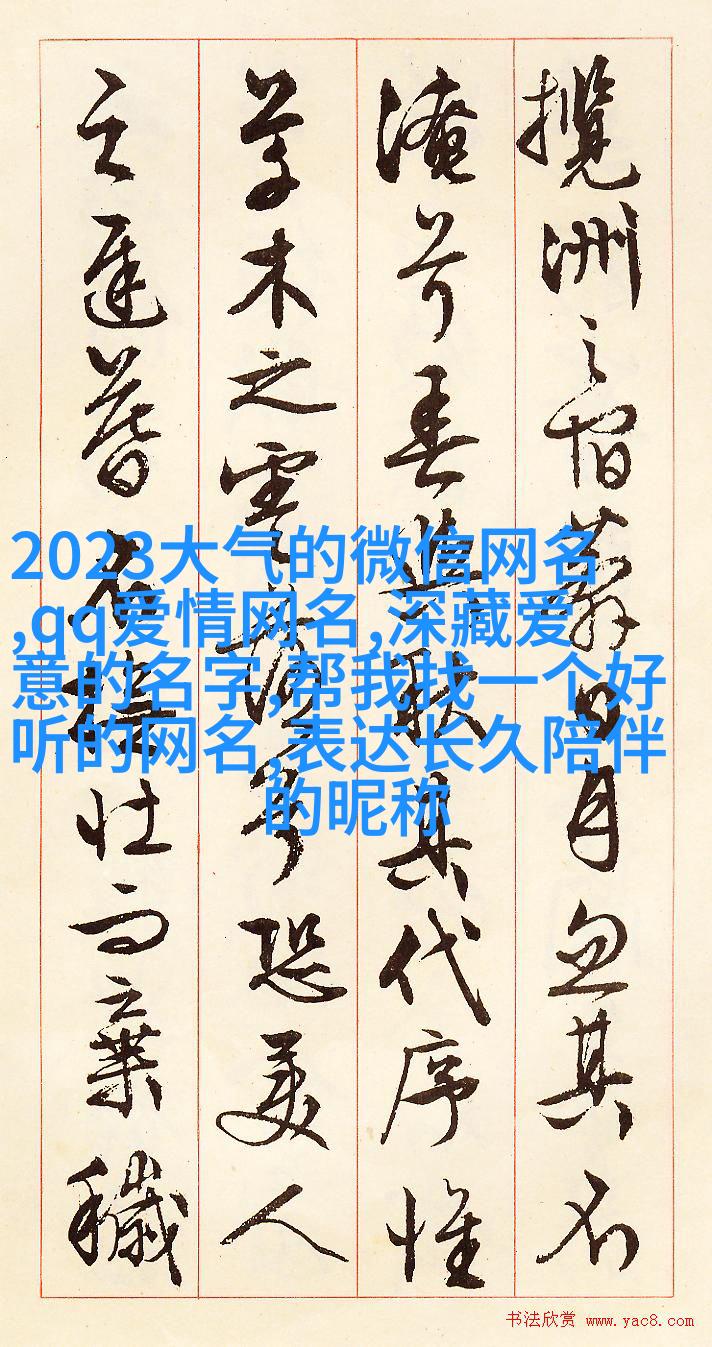 攬洲之宿莽日月忽其不
淹兮春與秋其代序惟
草木之零落兮恐美人
之遲暮不撫壯而棄穢
2023大气的微信网名
,qq爱情网名,深藏爱
意的名字,帮我找一个好
听的网名,表达长久陪伴
的昵称
书法欣赏 www.yac8.com